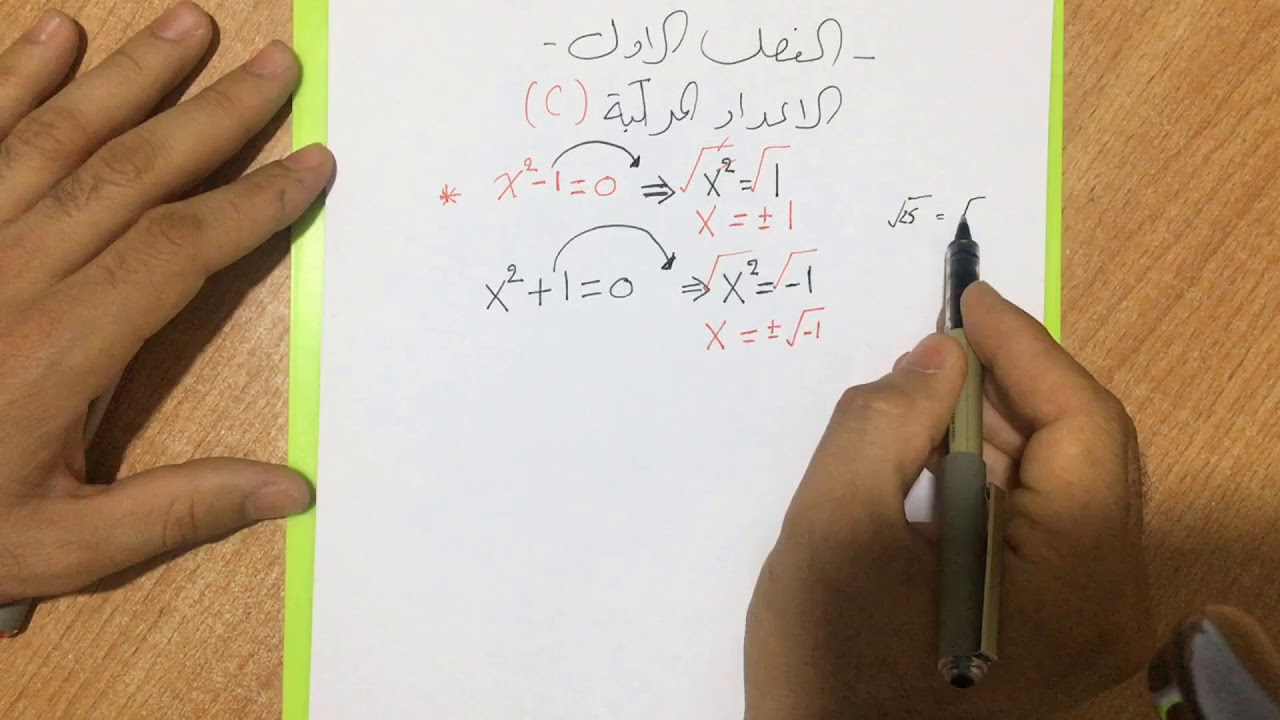 - الفصل الاول -
الاعداد المركبة (C)
* x²-1=0 ⇒ √x² = √1
x = ±1
√25 = √
x²+1=0 ⇒ √x² = √-1
x = ±√-1